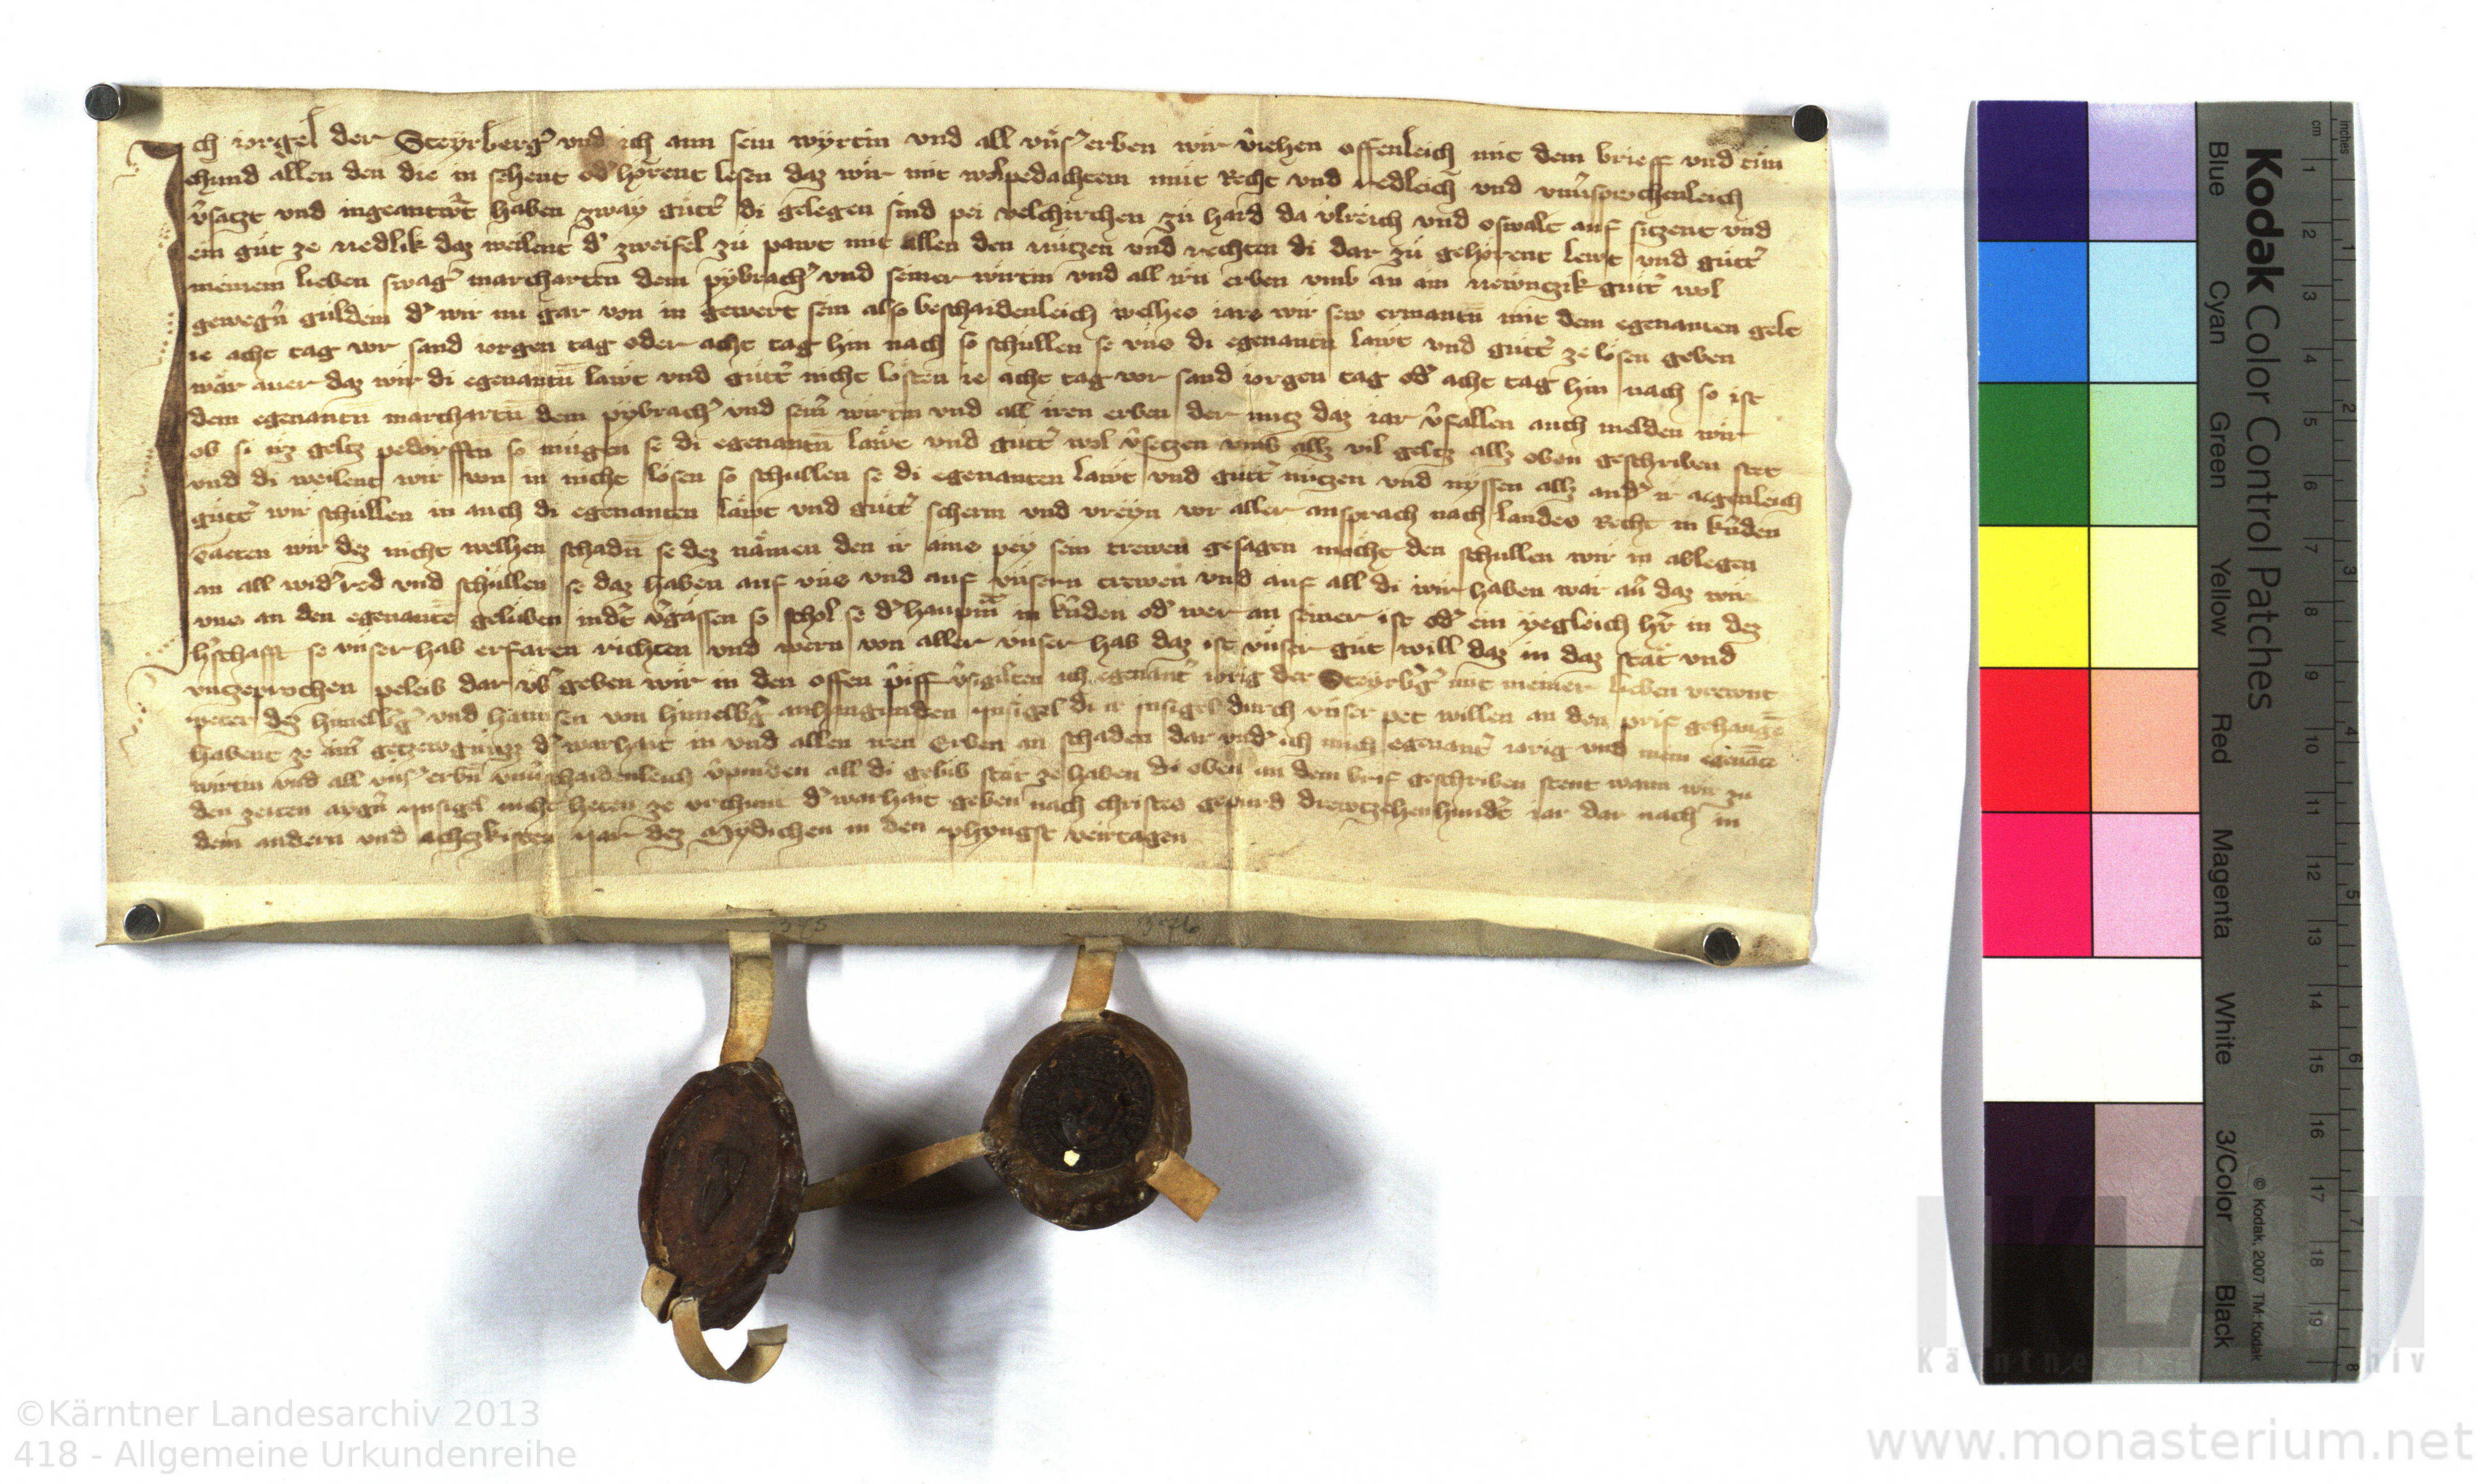 Ich iorgel der Steyrberg' vnd ich ann sein wyrtin vnd all vns' erben wir v'iehen offenleich mit dem brieff vnd tun
chund allen den die in sehent od' horent lesen daz wir mit wolpedachtem mut Recht vnd redleich vnd vnu'sprochenleich
v'satzt vnd ingeantwrt haben zway gutt' di gelegen sind pei velchirchen zu hard da vlreich vnd oswalt auf sitzent vnd
ein gut ze nedlik daz weilent d' zweifel zu pawt mit allen den nutzen vnd rechten di dar zu gehorent lewt vnd gutt'
meinem lieben swag' marcharten dem pybrach' vnd seiner wirtin vnd all irn erben vmb an ain newnczik gutt' wol
gewegn guldein d' wir nu gar von in gewert sein also beschaidenleich welhes iars wir sew ermantn mit dem egenanten gelt
ie acht tag vor sand iorgen tag oder acht tag hin nach so schullen se vns di egenantn lawt vnd gutt' ze losen geben
war auer daz wir di egenantn lawt vnd gutt' nicht losten ie acht tag vor sand iorgen tag od' acht tag hin nach so ist
dem egenantn marchartn dem pybrach' vnd sein' wirtin vnd all iren erben der nutz daz iar v'fallen auch melden wir
ob si irz geltz pedorfften so mugen se di egenantn lawt vnd gutt' wol v'setzen vmb allz vil geltz allz oben geschriben stet
vnd di weilent wir von in nicht losen so schullen se di egenanten lawt vnd gutt' nutzen vnd nyssen allz and' ir aigenleich
gutt' wir schullen in auch di egenanten lawt vnd gutt' scherm vnd vreyn vor aller ansprach nach landes Recht in kernden
taeten wir dez nicht welhen schadn se dez namen den ir ains pey sein trewen gesagen mocht den schullen wir in ablegen
an all wid'red vnd schullen se daz haben auf vns vnd auf vnsern trewen vnd auf all di wir haben war au' daz wir
vns an den egenante gelubn indt v'gassen so schol se d' haupm in kernden od' wer an seiner ist od' ein yegleich hr in dez
h'schafft se vnser hab erfaren richten vnd wern von aller vnser hab daz ist vnser gut will daz in daz stat vnd
vnczeprochen peleib dar vb' geben wir in den offen priff v'sigilten ich egenant' iorig der Steyrb'g' mit meiner lieben vrewnt
peter dez himelb'g' vnd hannsen von himelb'g anhangunden insigel di ir insigel durch vnser pet willen an den prif gehange
habent ze ain' getzewgnuzz d' warhait in vnd allen iren Erben an schaden dar vnd' ich mich egenant' iorig vnd mein egenate
wirtin vnd all vns' erbn vnu'schaidenleich v'pinden all di gelub stat ze haben di oben an dem brif geschriben stent wann wir zu
den zeiten aygn insigel nicht heten ze vrchunt d' warhait geben nach christes gepurd drewtzehenhundt iar dar nach in
dem andern vnd achczkisten yar dez Mydichen in den phyngst veirtagen
375
376
Kodak Color Control Patches
Blue
Cyan
Green
Yellow
Red
Magenta
White
3/Color
Black
© Kodak, 2007 TM: Kodak
cm 1 2 3 4 5 6 7 8 9 10 11 12 13 14 15 16 17 18 19
inches 1 2 3 4 5 6 7 8
©Kärntner Landesarchiv 2013
418 - Allgemeine Urkundenreihe
www.monasterium.net